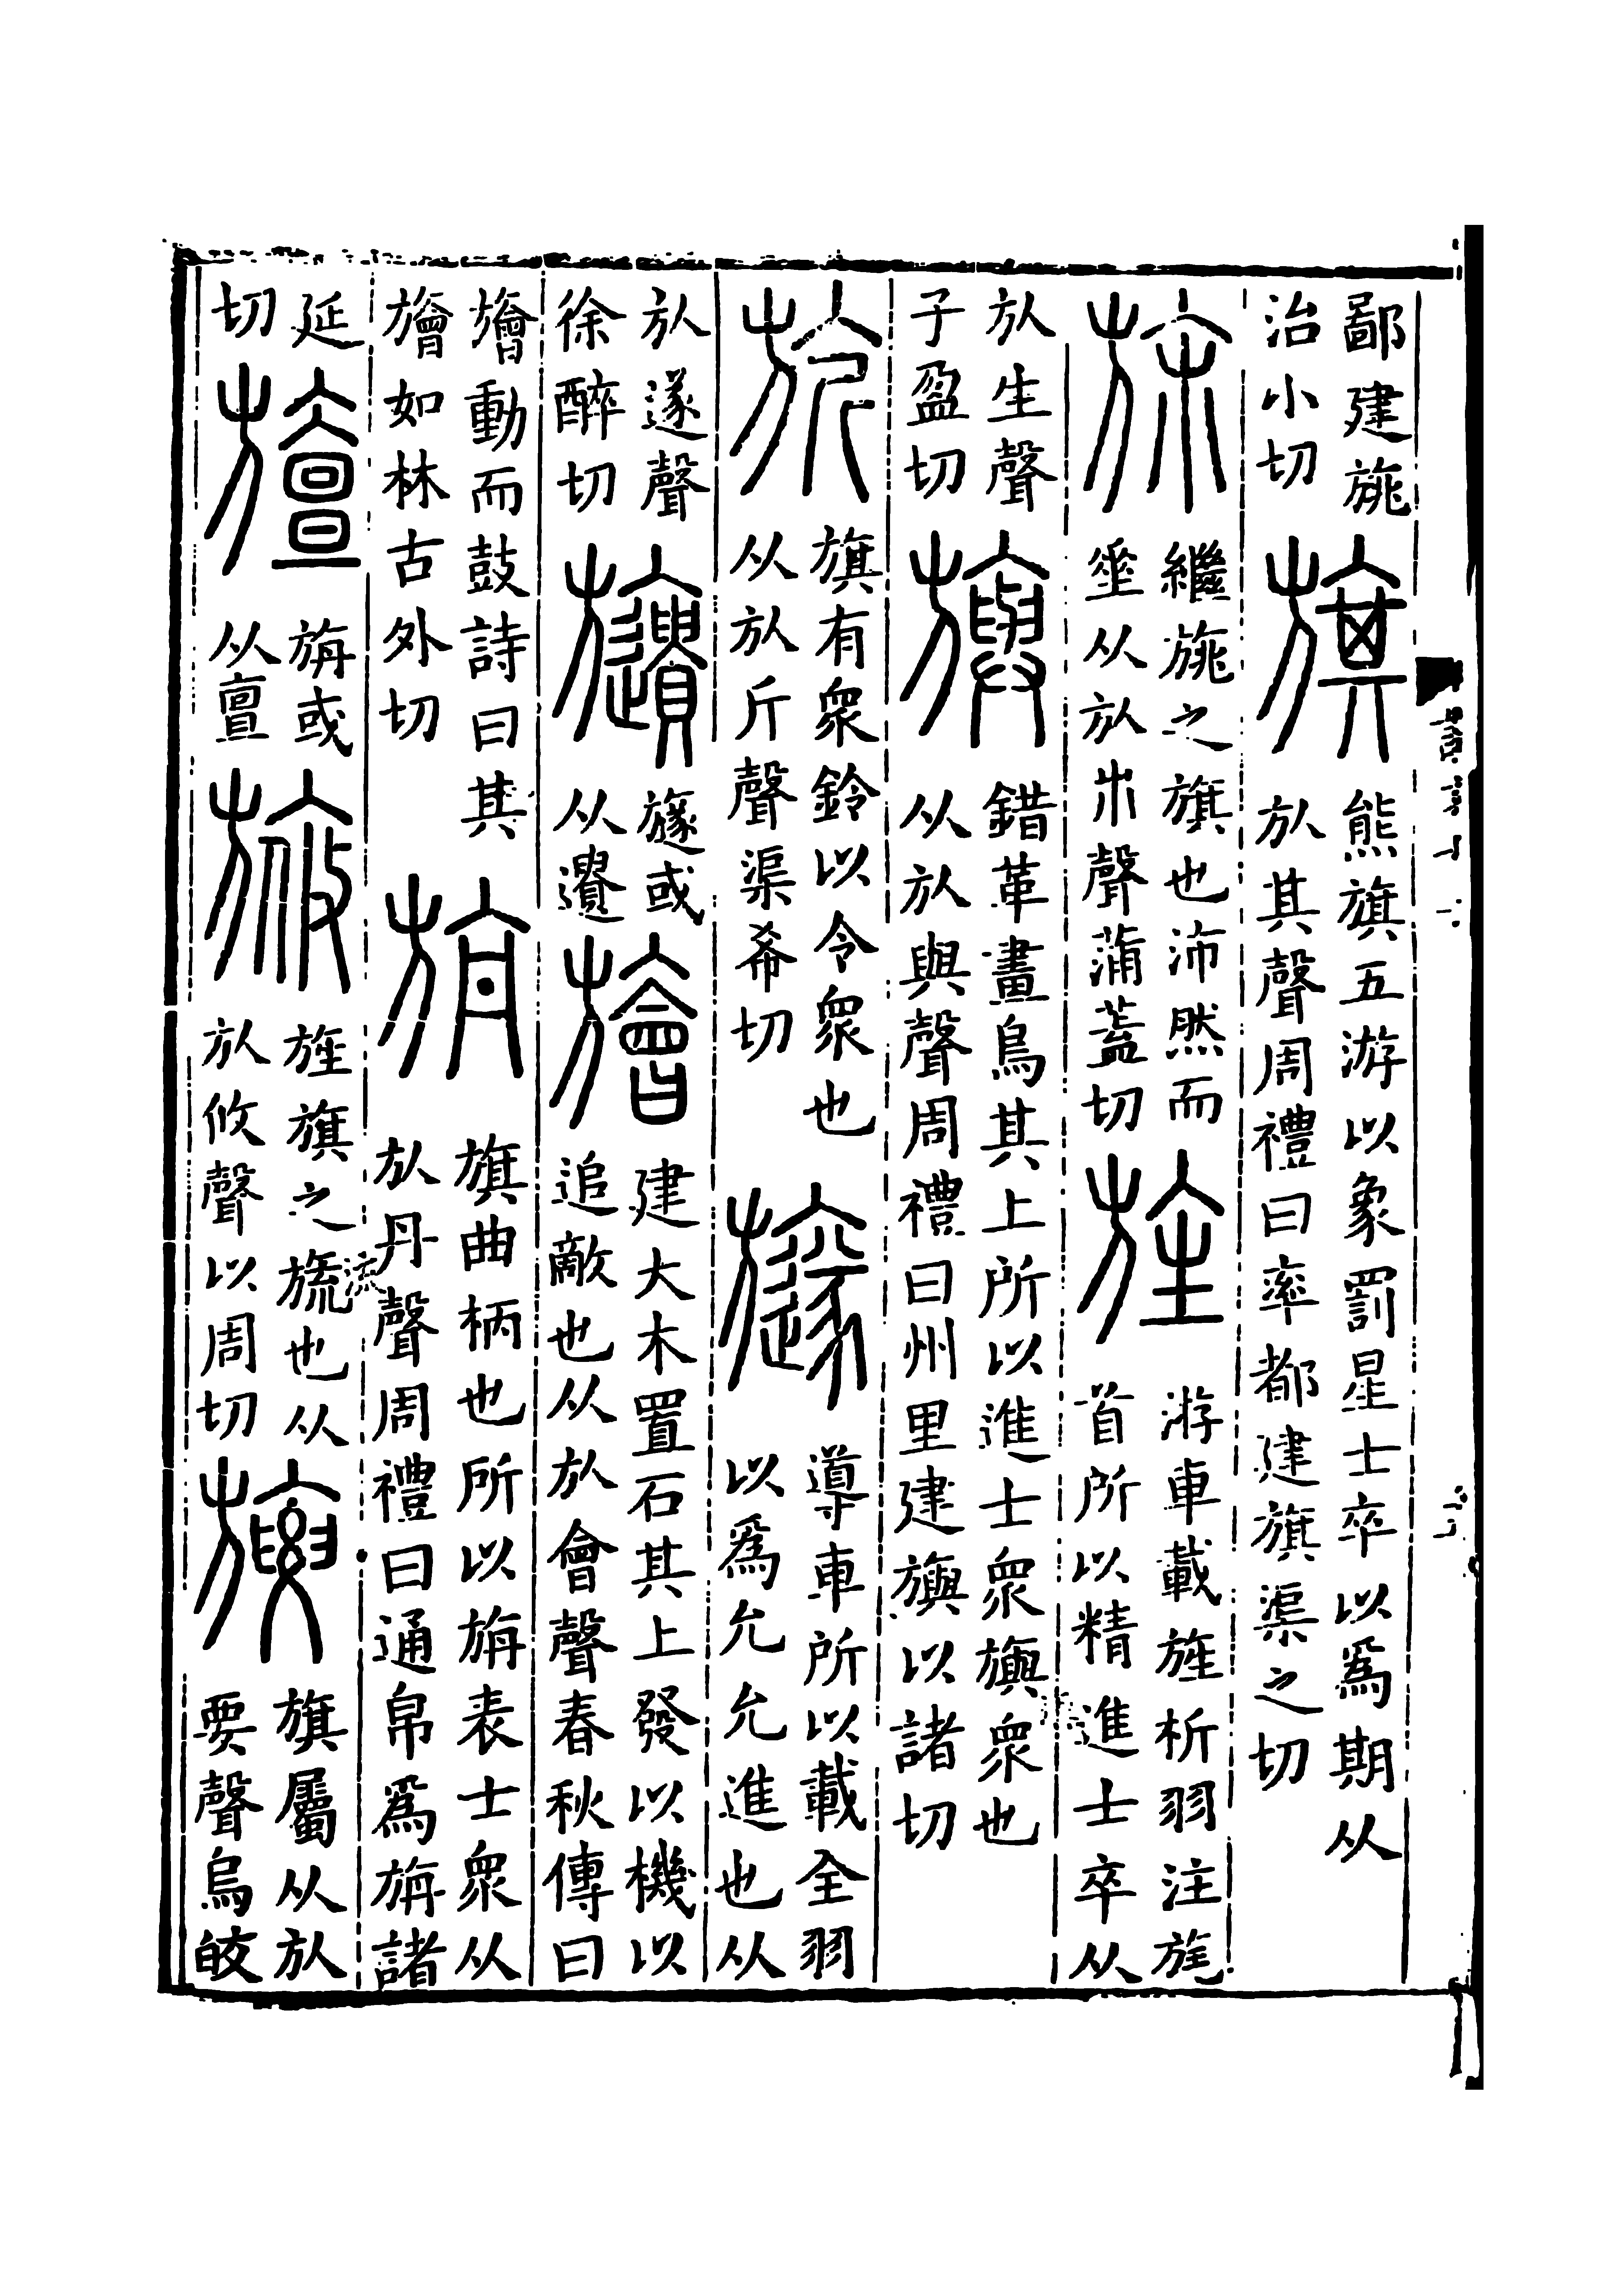 鄙建旐
治小切
旗
熊旗五游以象罰星士卒以爲期从
㫃其聲周禮曰率都建旗渠之切
旆
繼旐之旗也沛然而
垂从㫃巿聲蒲蓋切
旌
游車載旌析羽注旄
首所以精進士卒从
㫃生聲
子盈切
旟
錯革畫鳥其上所以進士衆旟衆也
从㫃與聲周禮曰州里建旟以諸切
旂
旗有衆鈴以令衆也
从㫃斤聲渠希切
旞
導車所以載全羽
以爲允允進也从
㫃遂聲
徐醉切
旞或
从遺
旝
建大木置石其上發以機以
追敵也从㫃會聲春秋傳曰
旝動而鼓詩曰其
旝如林古外切
旃
旗曲柄也所以旃表士衆从
㫃丹聲周禮曰通帛爲旃諸
延
切
旜
旃或
从亶
旌旗之旒也从
㫃攸聲以周切
旗屬从㫃
要聲烏皎